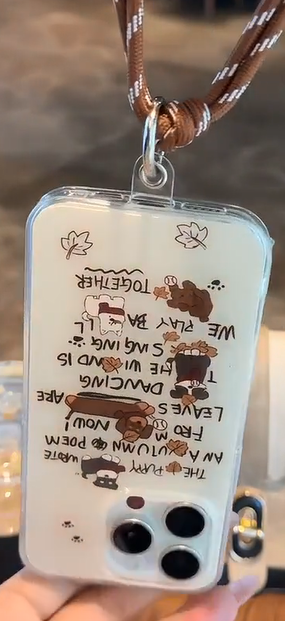 THE PUPPY WROTE
AN AUTUMN POEM
FROM NOW!
LEAVES ARE
DANCING
THE WIND IS
SINGING
WE PLAY BALL
TOGETHER